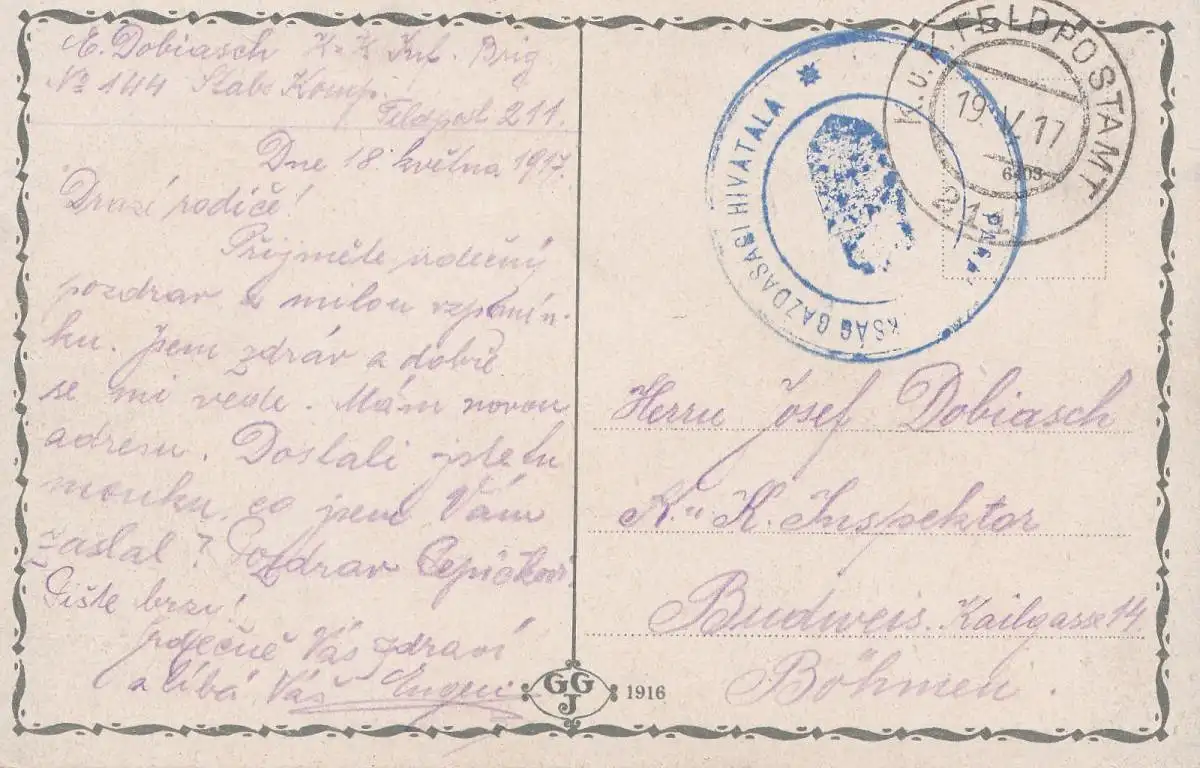 E. Dobiasch K. K. Inf. Brig.
No 144 Stabs Komp.
Feldpost 211.
Dne 18. května 1917.
Drazí rodiče!
Přijměte srdečný
pozdrav a milou vzpomín-
ku. Jsem zdráv a dobře
se mi vede. Mám novou
adresu. Dostali jste tu
mouku, co jsem Vám
zaslal? Pozdrav Pepíčkovi
Pište brzy!
Srdečně Vás zdraví
a líbá Váš Eugen
GGJ
1916
K.u.K. FELDPOSTAMT
19. V. 17
211
KSÁG GAZDASÁGI HIVATALA
Herrn Josef Dobiasch
K. K. Inspektor
Budweis. Kailgasse 14
Böhmen.